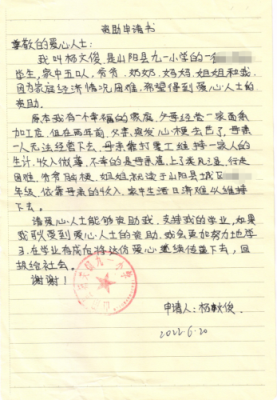 资助申请书
尊敬的爱心人士:
我叫杨文俊是山阳县九一小学的一
毕生,家中五口人,爷爷、奶奶、妈妈、姐姐和我,
因为家庭经济情况困难,希望得到爱心人士的
资助。
原本我有一个幸福的家庭,父母经营一家面条
加工店,但在两年前,父亲突发心梗去世了,母亲
一人无法经营下去,母亲靠打零工维持一家人的
生计,收入微薄,不幸的是母亲
困难,爷爷 姐姐就读于山阳县城区
年级,依靠母亲的收入,家中生活日渐难以维持
下去。
请爱心人士能够资助我,支持我的学业,如果
我职得到爱心人士的资助,我会更加努力地学
习,在学业有成后将这份爱心继续传递下去,回
报给社会。
谢谢!
申请人:杨文俊
2022.6.20